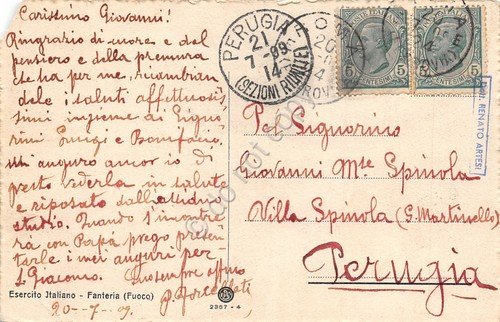 Carissimo Giovanni!
Ringrazio di cuore e del
pensiero e della premura
che ha per me, ricambian
dole i saluti affettuosis
simi insieme ai Signo
rini Luigi e Bonifazio.
auguro ancor io di
presto vederla in salute
e riposato dall'assiduo
studio. Quando s'incontre
rà con Papà prego presen
tarle i miei auguri per
S. Giacomo.
20-7-09.
Esercito Italiano - Fanteria (Fuoco)
2367-4
PERUGIA
21
7-99
14
(SEZIONI RIUNITE)
POSTE ITALIANE
5 CENTESIMI 5
5 CENTESIMI 5
RENATO ARTESI
Pel Signorino
Giovanni Mse Spinola
Villa Spinola (S. Martinello)
Perugia
do not copy